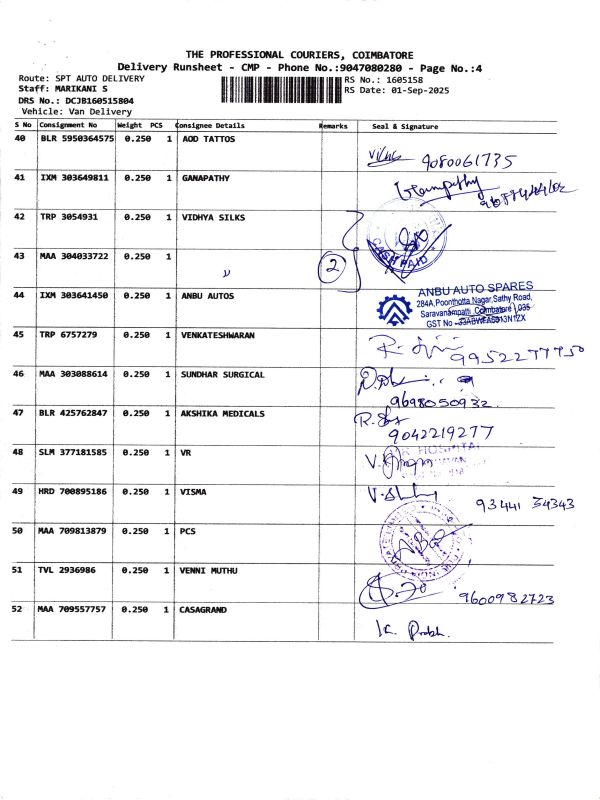 THE PROFESSIONAL COURIERS, COIMBATORE
Delivery Runsheet - CMP - Phone No.:9047080280 - Page No.:4
Route: SPT AUTO DELIVERY RS No.: 1605158
Staff: MARIKANI S RS Date: 01-Sep-2025
DRS No.: DCJB160515804
Vehicle: Van Delivery
S No Consignment No Weight PCS Consignee Details Remarks Seal & Signature
40 BLR 5950364575 0.250 1 AOD TATTOS
9080061735
41 IXM 303649811 0.250 1 GANAPATHY
Ganapathy
42 TRP 3054931 0.250 1 VIDHYA SILKS
CASH PAID
43 MAA 304033722 0.250 1
" 2
44 IXM 303641450 0.250 1 ANBU AUTOS
ANBU AUTO SPARES
284A, Poonthotta Nagar, Sathy Road,
Saravanampatti, Coimbatore - 035
GST No -
45 TRP 6757279 0.250 1 VENKATESHWARAN
9952277750
46 MAA 303088614 0.250 1 SUNDHAR SURGICAL
9698050932
47 BLR 425762847 0.250 1 AKSHIKA MEDICALS
9042219277
48 SLM 377181585 0.250 1 VR
HOSPITAL
49 HRD 700895186 0.250 1 VISMA
93441 34343
50 MAA 709813879 0.250 1 PCS
51 TVL 2936986 0.250 1 VENNI MUTHU
9600982723
52 MAA 709557757 0.250 1 CASAGRAND
K. Prabh.